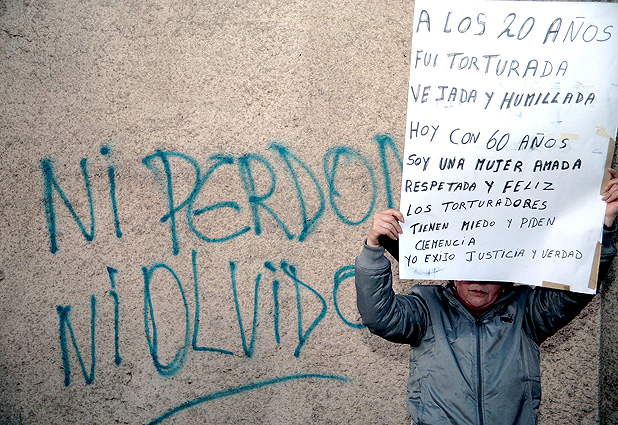 NI PERDON
NI OLVIDO
A LOS 20 AÑOS
FUI TORTURADA
VEJADA Y HUMILLADA
HOY CON 60 AÑOS
SOY UNA MUJER AMADA
RESPETADA Y FELIZ
LOS TORTURADORES
TIENEN MIEDO Y PIDEN
CLEMENCIA
YO EXIJO JUSTICIA Y VERDAD